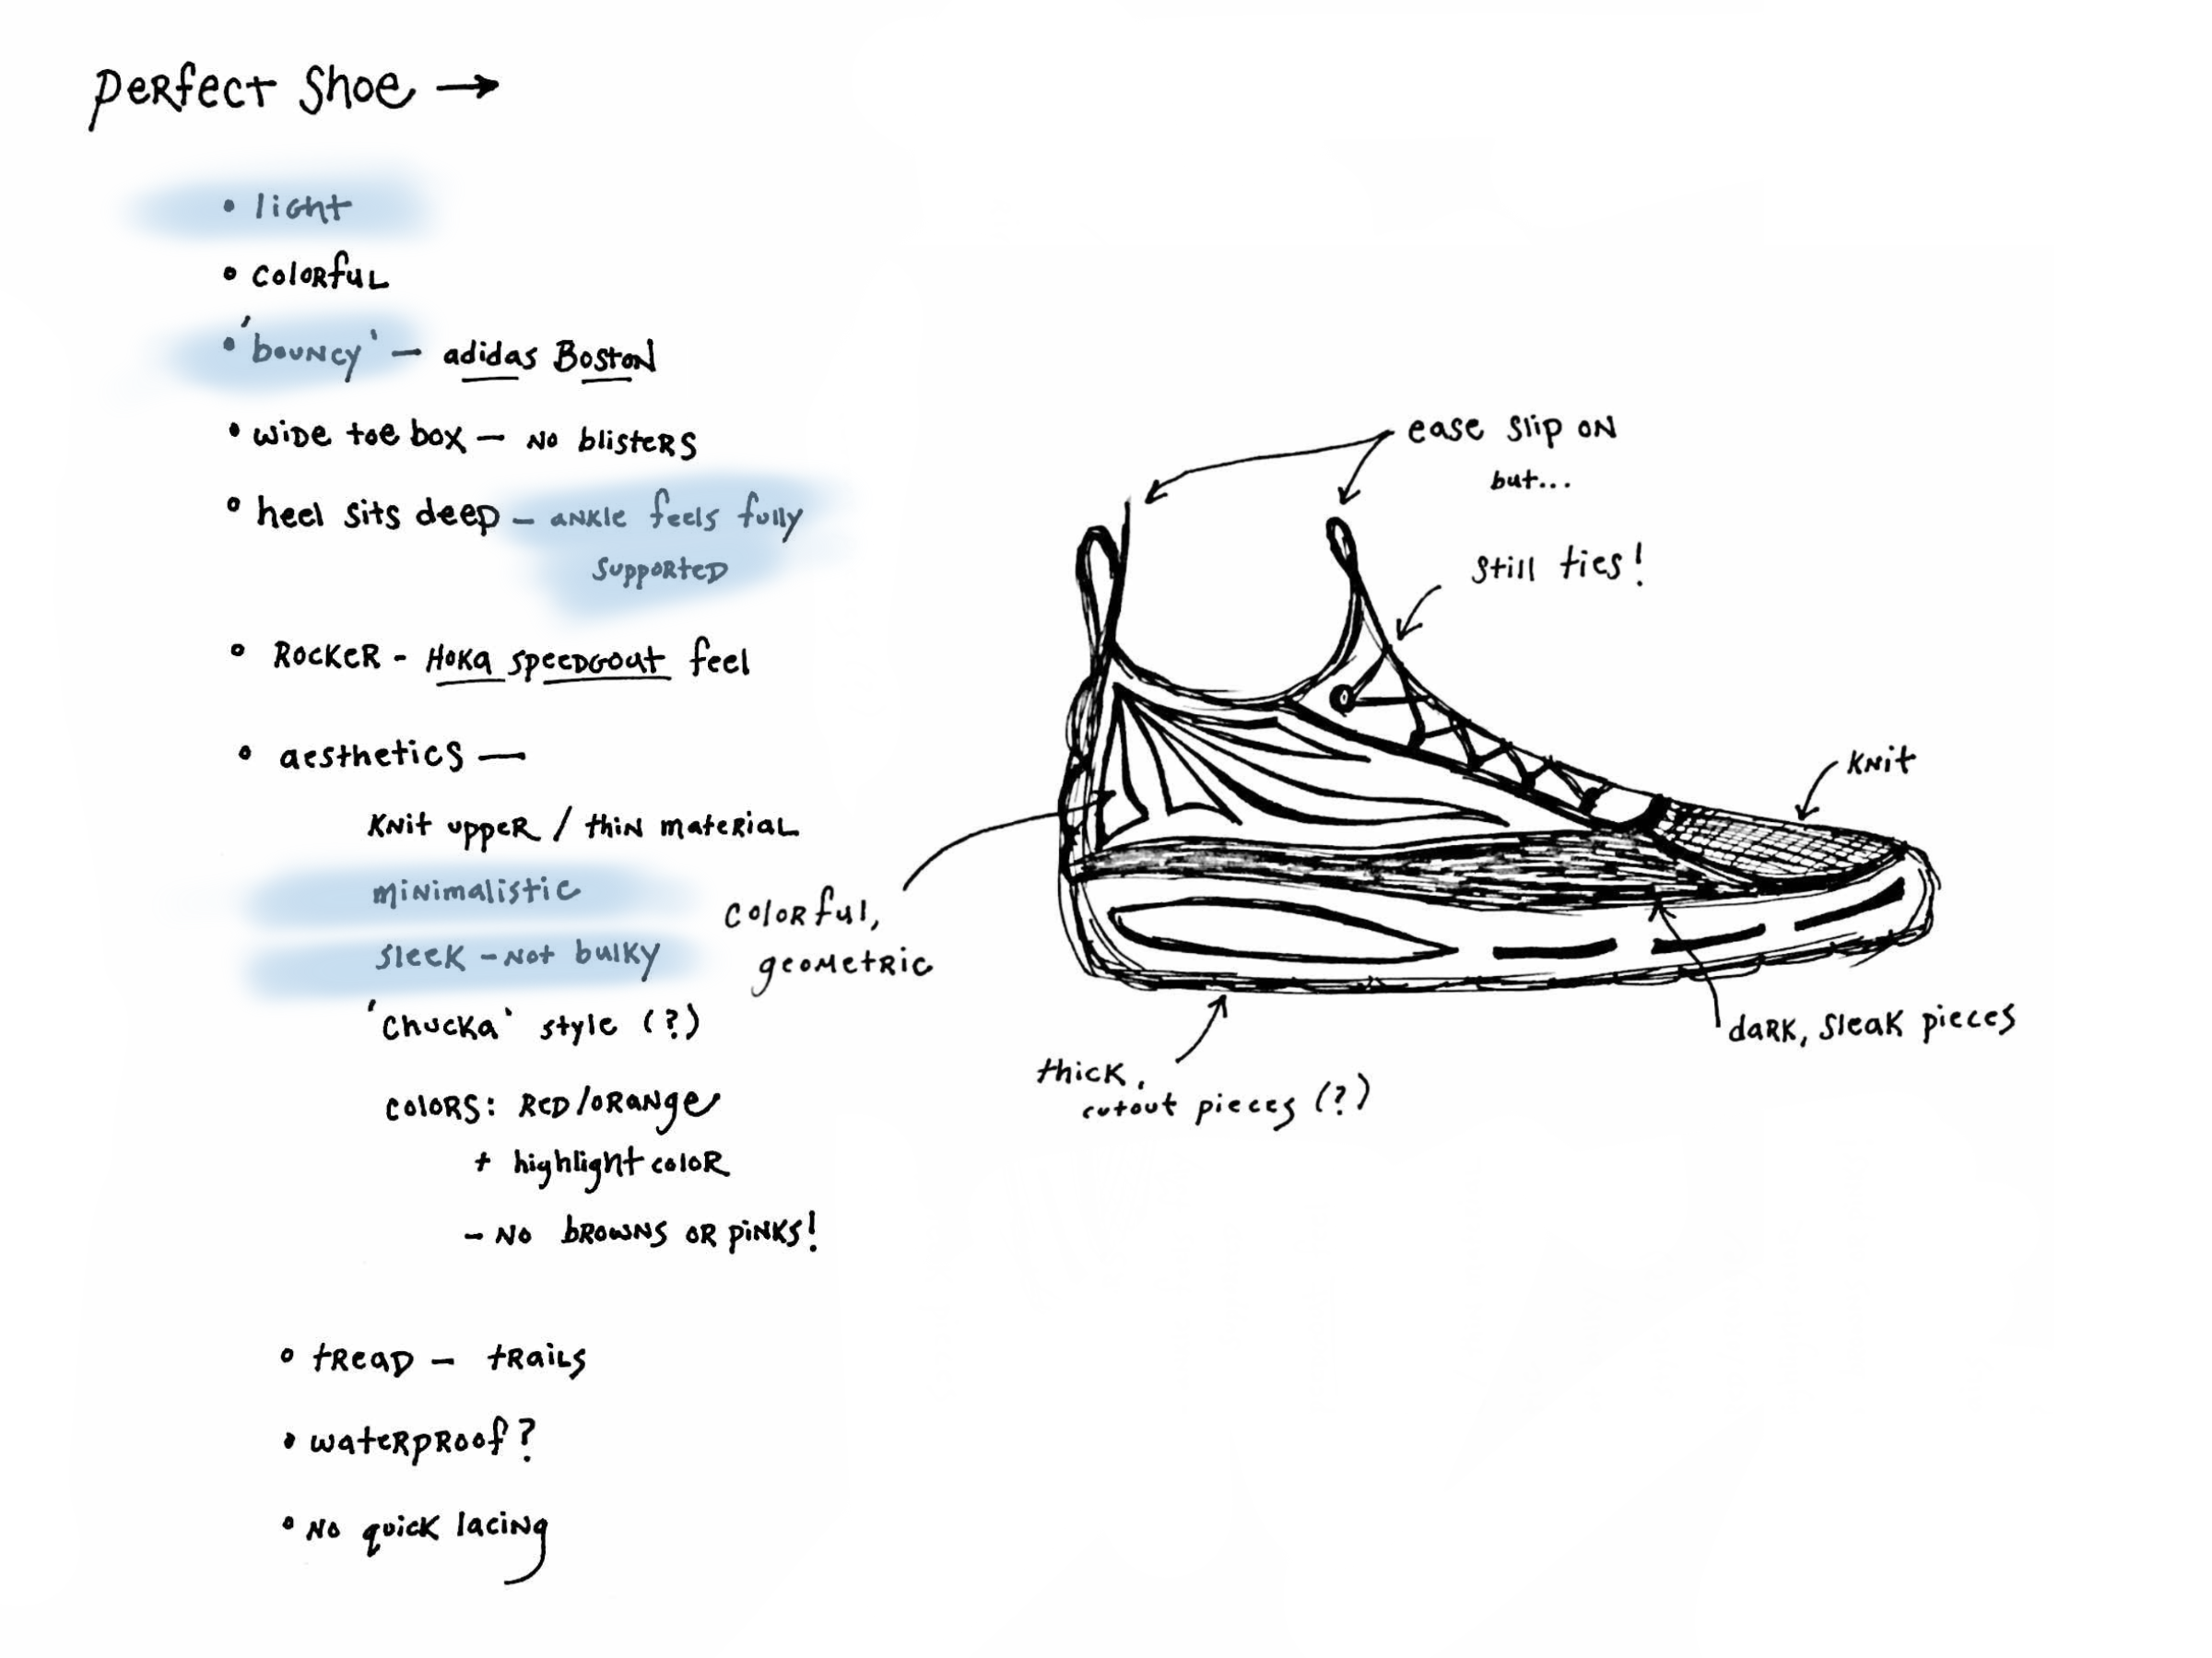 perfect shoe →
• light
• colorful
• 'bouncy' — adidas Boston
• wide toe box — no blisters
• heel sits deep — ankle feels fully
supported
• Rocker - Hoka speedgoat feel
• aesthetics —
Knit upper / thin material
minimalistic
sleek - not bulky
'chucka' style (?)
colors: Red/orange
+ highlight color
- no browns or pinks!
• tread — trails
• waterproof?
• no quick lacing
ease slip on
but...
still ties!
Knit
colorful,
geometric
dark, sleak pieces
thick,
cutout pieces (?)